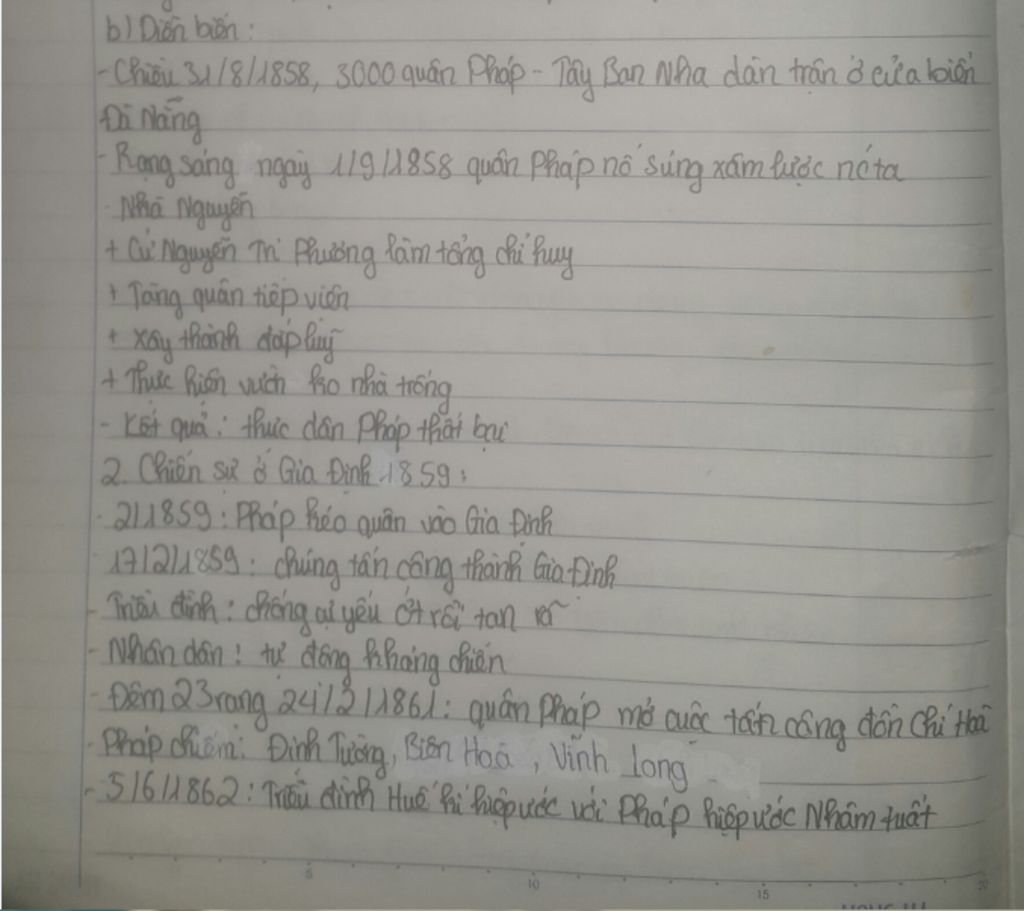 b) Diễn biến:
- Chiều 31/8/1858, 3000 quân Pháp - Tây Ban Nha dàn trận ở cửa biển
Đà Nẵng
- Rạng sáng ngày 1/9/1858 quân Pháp nổ súng xâm lược nc ta
- Nhà Nguyễn
+ Cử Nguyễn Tri Phương làm tổng chỉ huy
+ Tăng quân tiếp viện
+ Xây thành đắp luỹ
+ Thực hiện vườn ko nhà trống
- Kết quả: thực dân Pháp thất bại
2. Chiến sự ở Gia Định 1859:
- 2/1859: Pháp kéo quân vào Gia Định
17/2/1859: chúng tấn công thành Gia Định
- Triều đình: chống cự yếu ớt rồi tan rã
- Nhân dân: tự động kháng chiến
- Đêm 23 rạng 24/2/1861: quân Pháp mở cuộc tấn công đồn Chí Hoà
- Pháp chiếm: Định Tường, Biên Hoà, Vĩnh Long
- 5/6/1862: Triều đình Huế kí hiệp ước với Pháp hiệp ước Nhâm tuất
5 10 15 20